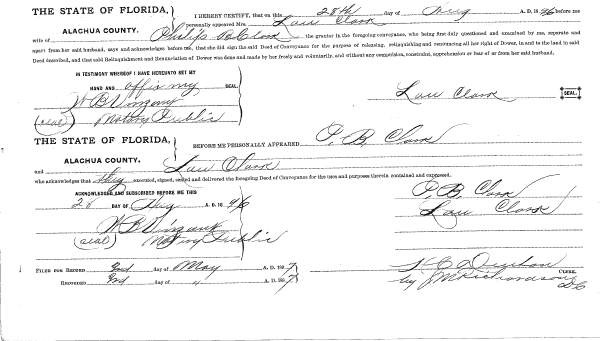 THE STATE OF FLORIDA,
ALACHUA COUNTY.
I HEREBY CERTIFY, that on this 28th day of Aug A. D. 1896 before me
personally appeared Mrs. Lau Clark
wife of Philip B. Clark the grantor in the foregoing conveyance, who being first duly questioned and examined by me, separate and
apart from her said husband, says and acknowledges before me, that she did sign the said Deed of Conveyance for the purpose of releasing, relinquishing and renouncing all her right of Dower, in and to the land in said
Deed described, and that said Relinquishment and Renunciation of Dower was done and made by her freely and voluntarily, and without any compulsion, constraint, apprehension or fear of or from her said husband.
IN TESTIMONY WHEREOF I HAVE HEREUNTO SET MY
HAND AND affix my SEAL.
W B
(seal) Notary Public
Lau Clark SEAL.
THE STATE OF FLORIDA,
ALACHUA COUNTY.
BEFORE ME PERSONALLY APPEARED P. B. Clark
and Lau Clark
who acknowledges that they executed, signed, sealed and delivered the foregoing Deed of Conveyance for the uses and purposes therein contained and expressed.
ACKNOWLEDGED AND SUBSCRIBED BEFORE ME THIS
28 DAY OF Aug A. D. 1896
P. B. Clark
Lau Clark
W B
(seal) Notary Public
FILED FOR RECORD 3rd day of May A. D. 1897
RECORDED 3rd day of " A. D. 1897
H C Denton CLERK.
by J M Richardson D C